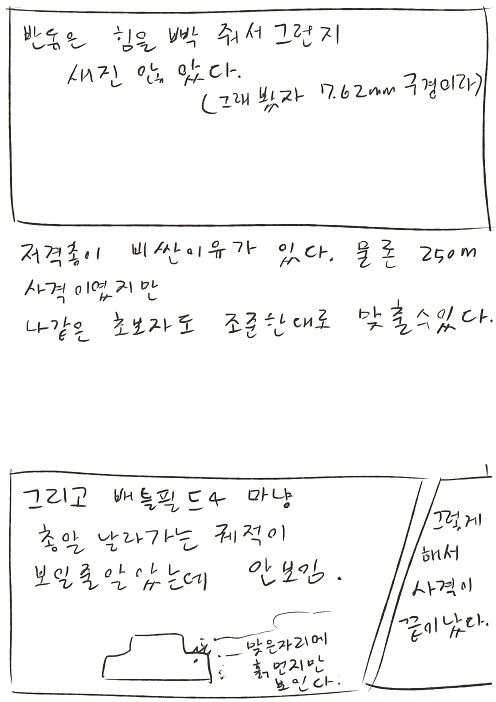 반동은 힘을 빡 줘서 그런지
새진 않았다.
(그래봤자 7.62mm 구경이라)
저격총이 비싼이유가 있다. 물론 250m
사격이였지만
나같은 초보자도 조준한대로 맞출수있다.
그리고 배틀필드4 마냥
총알 날라가는 궤적이
보일줄알았는데 안보임.
맞은자리에
흙먼지만
보인다.
그렇게
해서
사격이
끝이났다.